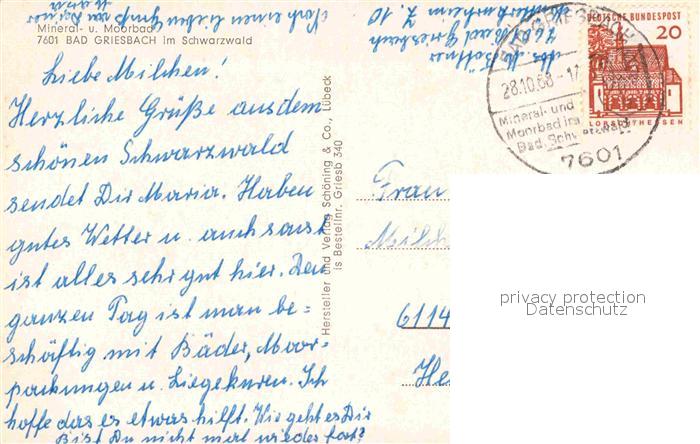 Mineral- u. Moorbad
7601 BAD GRIESBACH im Schwarzwald
Liebe Milchen!
Herzliche Grüße aus dem
schönen Schwarzwald
sendet Dir Maria. Haben
gutes Wetter u. auch sonst
ist alles sehr gut hier. Den
ganzen Tag ist man be=
schäftig mit Bäder, Moor-
packungen u. Liegekuren. Ich
hoffe das es etwas hilft. Wie geht es Dir
Bist Du nicht mal wieder fort?
Noch einen lieben Gruß
Maria
7601 Bad Griesbach
Hersteller und Verlag Schöning & Co., Lübeck
is Bestellnr. Griesb 340
DEUTSCHE BUNDESPOST
20
LORSCH/HESSEN
BAD GRIESBACH
28.10.68-17
Mineral- und
Moorbad im
Bad. Schwarzwald
7601
Frau
6114
privacy protection
Datenschutz